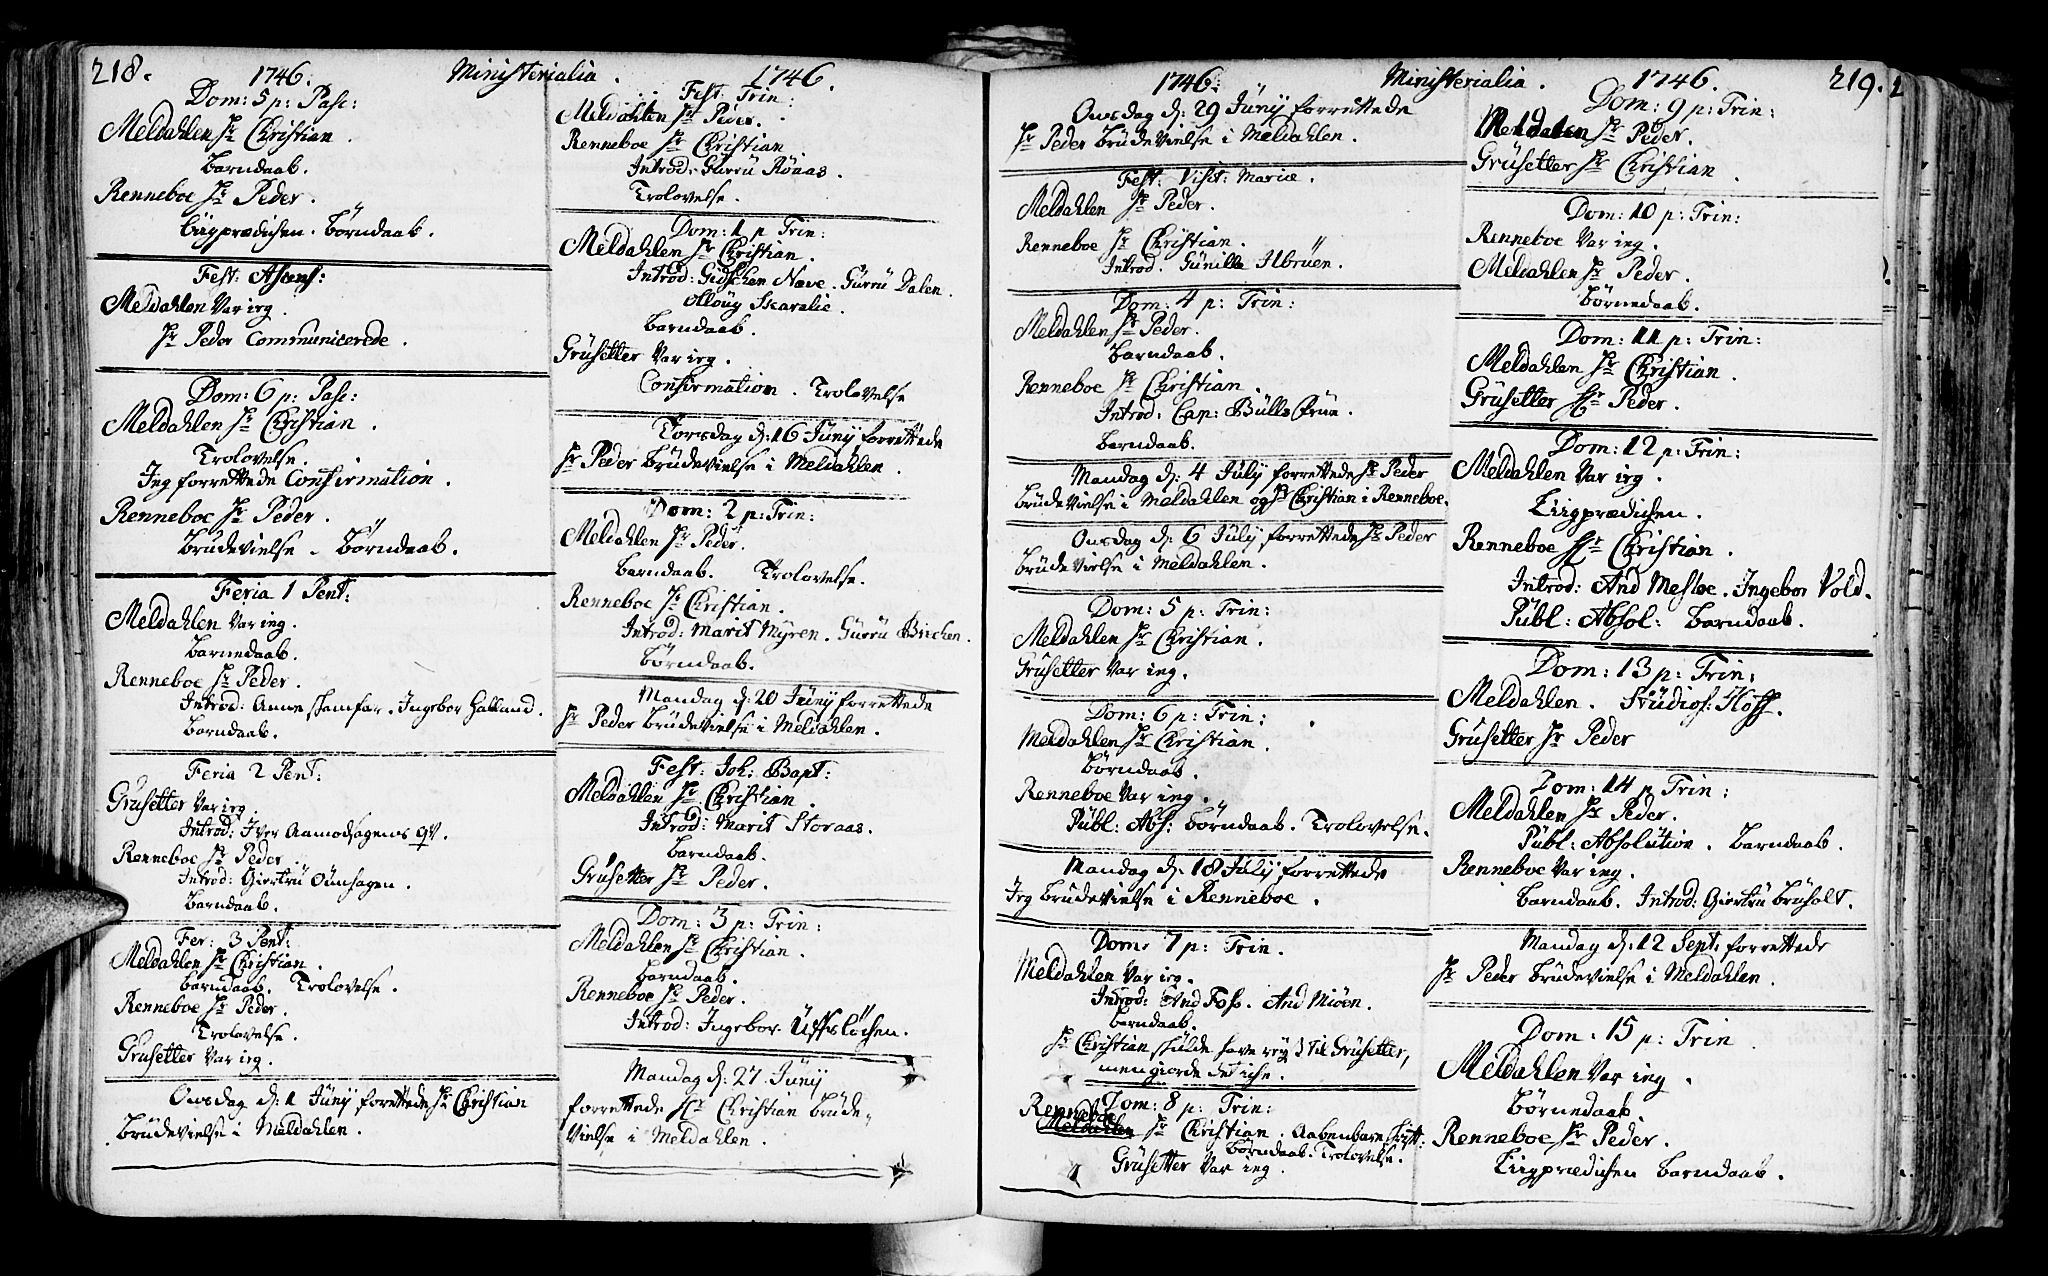 218.
1746. Ministerialia. 1746.
Dom: 5 p: Pasc:
Meldahlen Hr Christian.
Barndaab.
Renneboe Hr Peder.
Liigprædichen. Börndaab.
Fest: Ascens:
Meldahlen Var ieg.
Hr Peder Communicerede.
Dom: 6 p: Pasc:
Meldahlen Hr Christian.
Trolovelse.
Jeg forrettede Confirmation.
Renneboe Hr Peder.
Brudevielse. Börndaab.
Feria 1 Pent:
Meldahlen Var ieg.
Barnedaab.
Renneboe Hr Peder.
Introd: Anne Skamfar. Ingebor Halland.
Barndaab.
Feria 2 Pent:
Grüsetter Var ieg.
Introd: Iver Aamodhagens qv.
Renneboe Hr Peder.
Introd: Giertrü Oünhagen.
Barndaab.
Fer: 3 Pent:
Meldahlen Hr Christian.
Barndaab. Trolovelse.
Renneboe Hr Peder.
Trolovelse.
Grüsetter Var ieg.
Onsdag d: 1 Jüny forettede Hr Christian
Brüdevielse i Meldahlen.
Fest: Trin:
Meldahlen Hr Peder.
Renneboe Hr Christian.
Introd: Gurrü Röaas.
Trolovelse.
Dom: 1 p Trin:
Meldahlen Hr Christian.
Introd: Gidschen Næve. Gürrü Dalen.
Olloug Skaralie.
Barndaab.
Grüsetter Var ieg.
Confirmation. Trolovelse
Torsdag d: 16 Jüny forrettede
Hr Peder Brüdevielse i Meldahlen.
Dom: 2 p: Trin:
Meldahlen Hr Peder.
Barndaab. Trolovelse.
Renneboe Hr Christian.
Introd: Marit Myren. Gürrü Birchen.
Börndaab.
Mandag d: 20 Jüny forrettede
Hr Peder Brüdevielse i Meldahlen.
Fest: Joh: Bapt:
Meldahlen Hr Christian.
Introd: Marit Storaas.
Barndaab.
Grüsetter Hr Peder.
Dom: 3 p: Trin:
Meldahlen Hr Christian.
Barndaab.
Renneboe Hr Peder.
Introd: Ingebor Üffslöchen.
Mandag d: 27 Jüny
forrettede Hr Christian Brüde-
vielse i Meldahlen.
1746. Ministerialia. 1746. 219.
Onsdag d: 29 Jüny forrettede
Hr Peder Brüdevielse i Meldahlen.
Fest: Visit: Mariæ.
Meldahlen Hr Peder.
Renneboe Hr Christian.
Introd. Günille Ilbrüen.
Dom: 4 p: Trin:
Meldahlen Hr Peder.
Barndaab.
Renneboe Hr Christian.
Introd: Cap: Bülls Früe.
Barndaab.
Mandag d: 4 Jüly forrettede Hr Peder
Brüdevielse i Meldahlen og Hr Christian i Renneboe.
Onsdag d: 6 Jüly forrettede Hr Peder
Brüdevielse i Meldahlen.
Dom: 5 p: Trin:
Meldahlen Hr Christian.
Grüsetter Var ieg.
Dom: 6 p: Trin:
Meldahlen Hr Christian.
Börndaab.
Renneboe Var ieg.
Pübl: Abs: Börndaab. Trolovelse.
Mandag d: 18 Jüly forrettede
Jeg Brüdevielse i Renneboe.
Dom: 7 p: Trin.
Meldahlen Var ieg.
Introd: And Foss. And Miöen.
Barndaab.
Hr Christian skülde have reyst til Grüsetter,
men giorde det iche.
Dom: 8 p: Trin:
Renneboe
Meldahlen Hr Christian. Aabenbare Skrift:
Börndaab. Trolovelse.
Grüsetter Var ieg.
Dom: 9 p: Trin:
Meldahlen Hr Peder.
Grüsetter Hr Christian.
Dom: 10 p: Trin:
Renneboe Var ieg.
Meldahlen Hr Peder.
Börnedaab.
Dom: 11 p: Trin:
Meldahlen Hr Christian.
Grüsetter Hr Peder.
Dom: 12 p: Trin:
Meldahlen Var ieg.
Liigprædichen.
Renneboe Hr Christian.
Introd: And Mesloe. Ingebor Vold.
Pübl: Absol: Barndaab.
Dom: 13 p: Trin:
Meldahlen. Stüdios: Hoff.
Grüsetter Hr Peder
Dom: 14 p Trin:
Meldahlen Hr Peder.
Pübl: Absolütion. Barndaab.
Renneboe Var ieg.
Barndaab. Introd: Giertrü Brüholt.
Mandag d: 12 Sept: forrettede
Hr Peder Brüdevielse i Meldahlen.
Dom: 15 p: Trin.
Meldahlen Var ieg.
Börnedaab.
Renneboe Hr Peder.
Liigprædichen Barndaab.